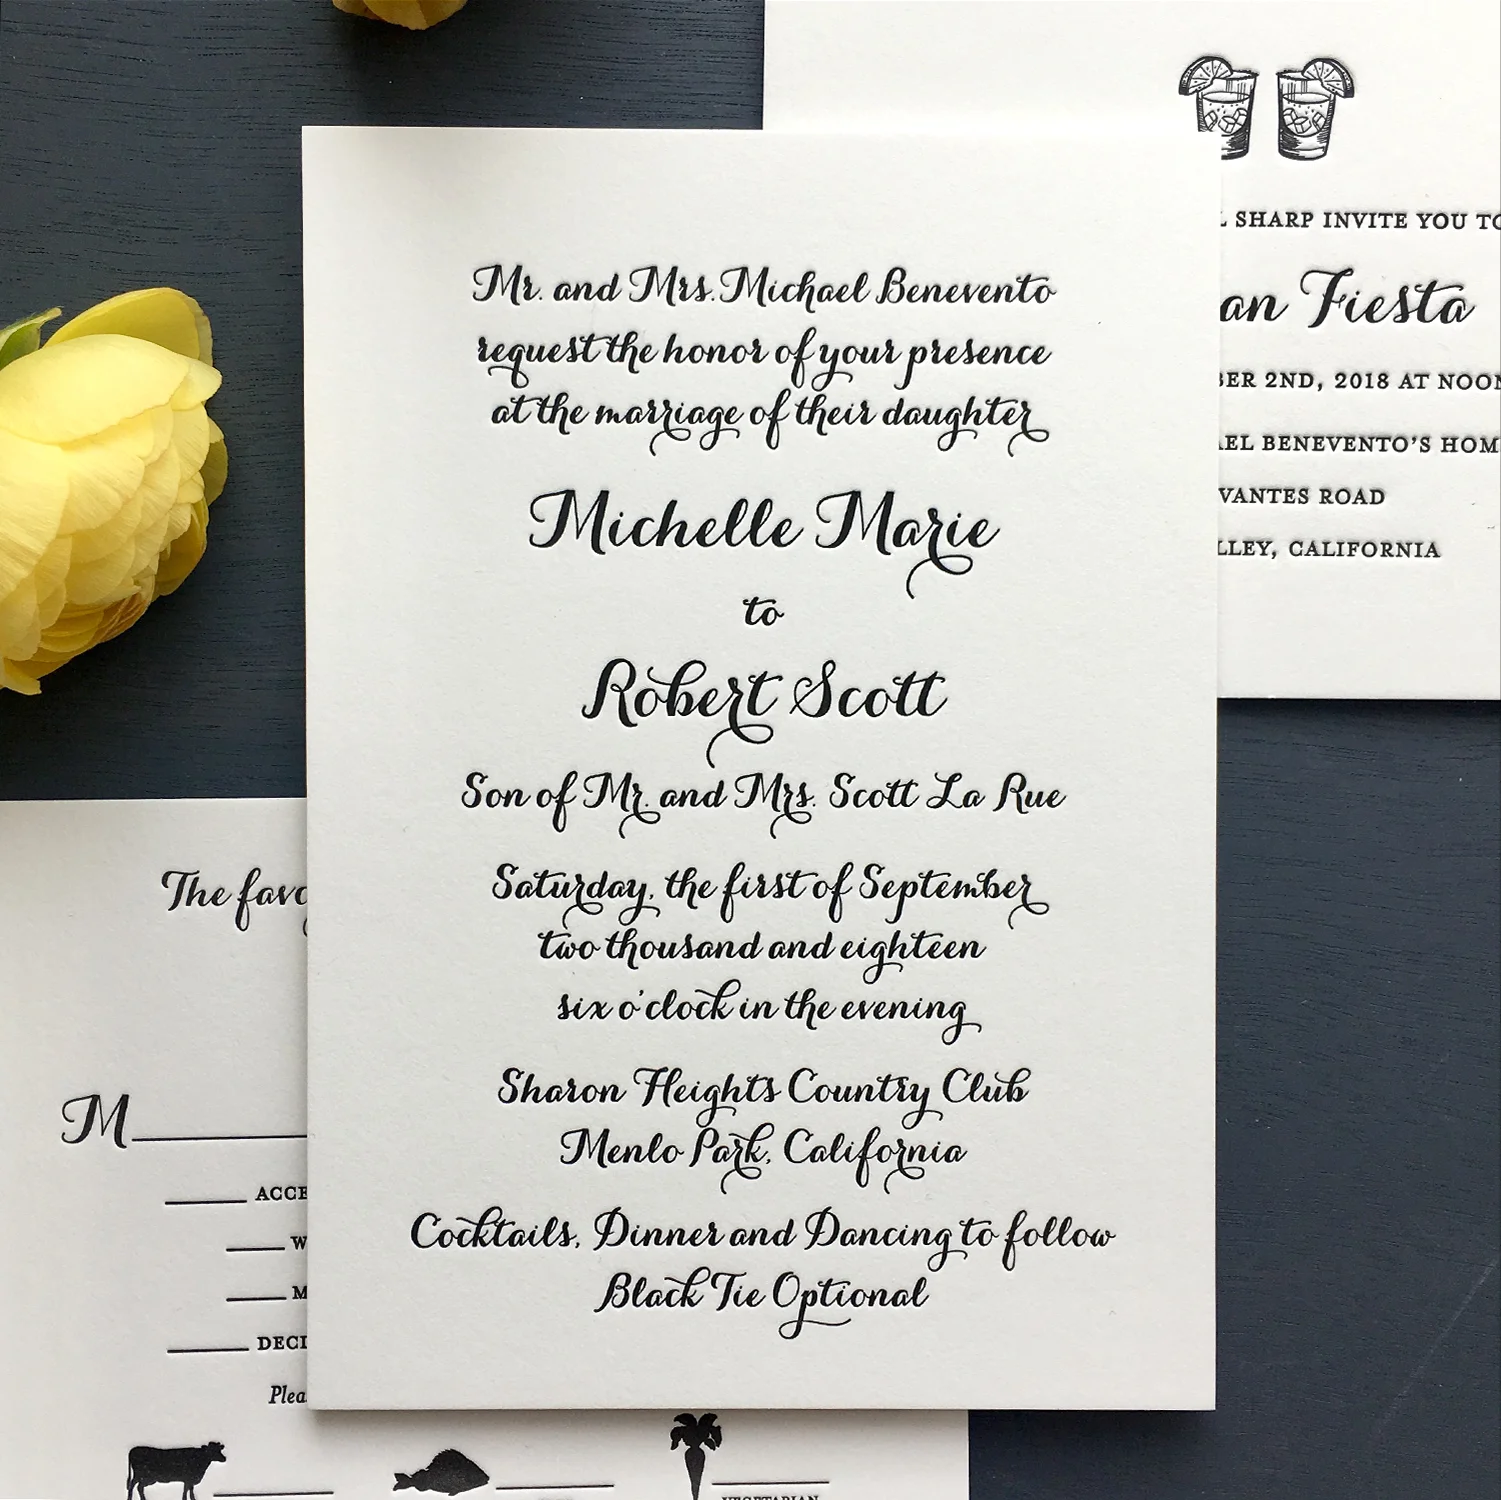 Mr. and Mrs. Michael Benevento
request the honor of your presence
at the marriage of their daughter
Michelle Marie
to
Robert Scott
Son of Mr. and Mrs. Scott La Rue
Saturday, the first of September
two thousand and eighteen
six o'clock in the evening
Sharon Heights Country Club
Menlo Park, California
Cocktails, Dinner and Dancing to follow
Black Tie Optional
SHARP INVITE YOU TO
an Fiesta
BER 2ND, 2018 AT NOON
AEL BENEVENTO'S HOM
VANTES ROAD
LLEY, CALIFORNIA
The favo
M
ACCE
W
M
DECL
Plea
VEGETARIAN